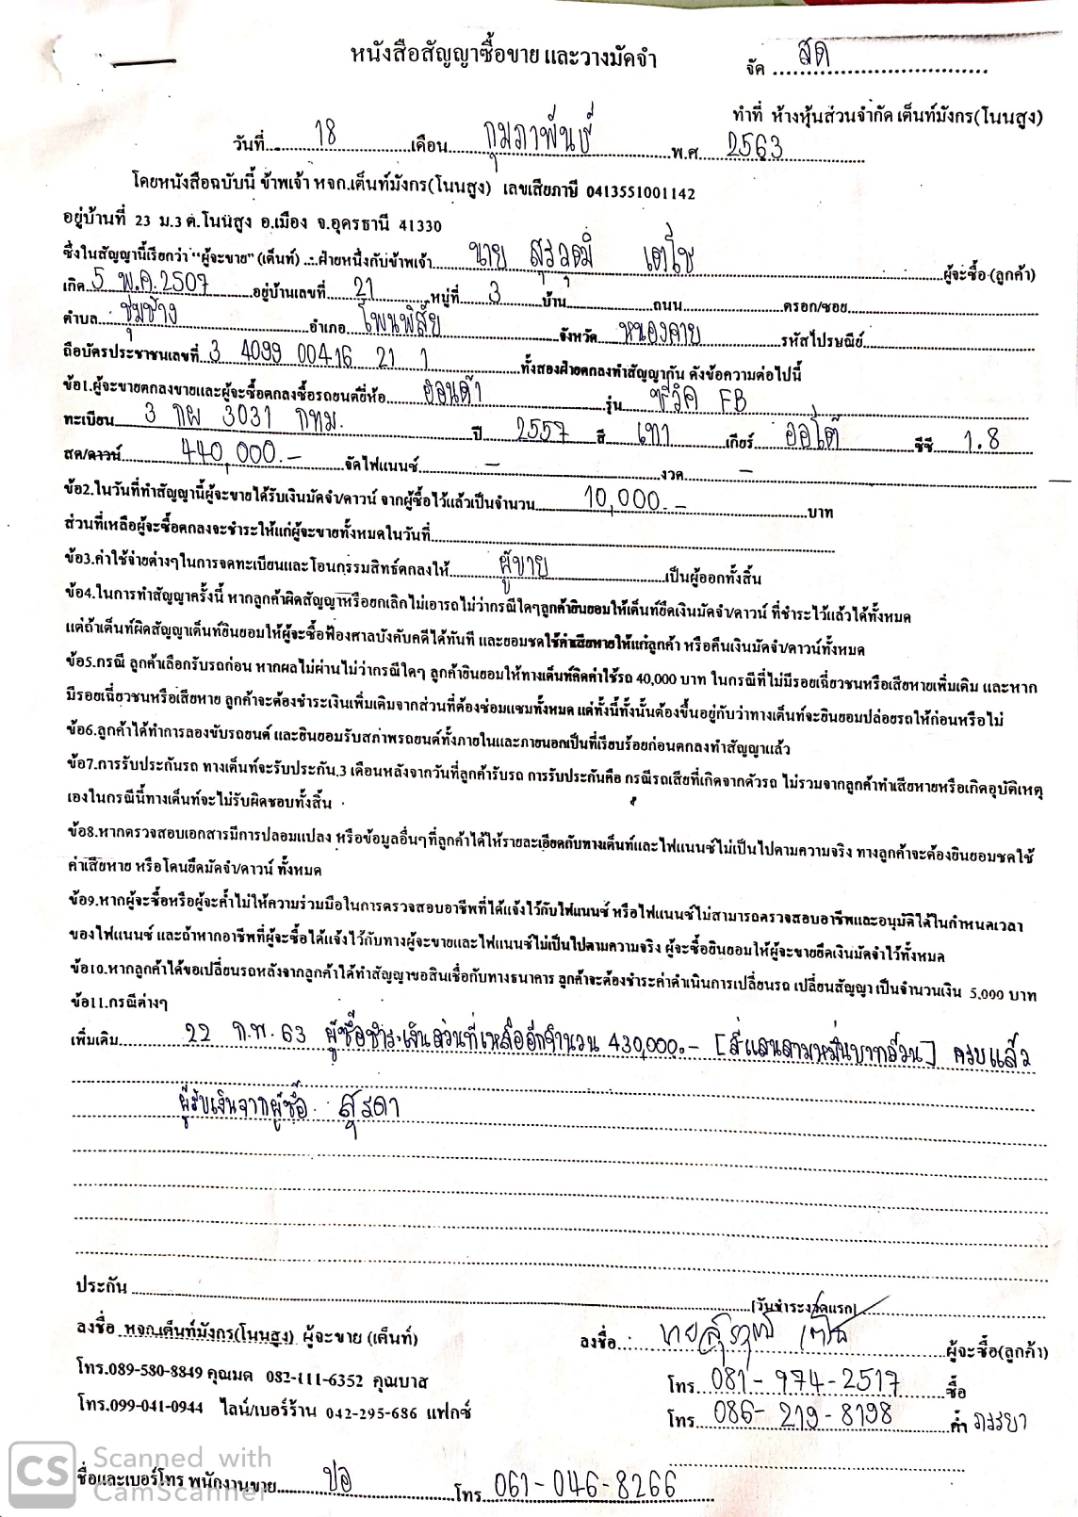 หนังสือสัญญาซื้อขาย และวางมัดจำ
จัด สด
ทำที่ ห้างหุ้นส่วนจำกัด เต็นท์มังกร(โนนสูง)
วันที่ 18 เดือน กุมภาพันธ์ พ.ศ. 2563
โดยหนังสือฉบับนี้ ข้าพเจ้า หจก.เต็นท์มังกร(โนนสูง) เลขเสียภาษี 0413551001142
อยู่บ้านที่ 23 ม.3 ต.โนนสูง อ.เมือง จ.อุดรธานี 41330
ซึ่งในสัญญานี้เรียกว่า "ผู้จะขาย" (เต็นท์) ...ฝ่ายหนึ่งกับข้าพเจ้า นาย สุรวุฒิ เตโช ผู้จะซื้อ (ลูกค้า)
เกิด 5 พ.ค. 2507 อยู่บ้านเลขที่ 21 หมู่ที่ 3 บ้าน ถนน ตรอก/ซอย
ตำบล ชุมช้าง อำเภอ โพนพิสัย จังหวัด หนองคาย รหัสไปรษณีย์
ถือบัตรประชาชนเลขที่ 3 4099 00416 21 1 ทั้งสองฝ่ายตกลงทำสัญญากัน ดังข้อความต่อไปนี้
ข้อ1.ผู้จะขายตกลงขายและผู้จะซื้อตกลงซื้อรถยนต์ยี่ห้อ ฮอนด้า รุ่น ซีวิค FB
ทะเบียน 3 กผ 3031 กทม. ปี 2557 สี เทา เกียร์ ออโต้ ซีซี 1.8
สด/ดาวน์ 440,000.- จัดไฟแนนซ์ - งวด -
ข้อ2.ในวันที่ทำสัญญานี้ผู้จะขายได้รับเงินมัดจำ/ดาวน์ จากผู้ซื้อไว้แล้วเป็นจำนวน 10,000.- บาท
ส่วนที่เหลือผู้จะซื้อตกลงจะชำระให้แก่ผู้จะขายทั้งหมดในวันที่
ข้อ3.ค่าใช้จ่ายต่างๆในการจดทะเบียนและโอนกรรมสิทธ์ตกลงให้ ผู้ขาย เป็นผู้ออกทั้งสิ้น
ข้อ4.ในการทำสัญญาครั้งนี้ หากลูกค้าผิดสัญญาหรือยกเลิกไม่เอารถไม่ว่ากรณีใดๆลูกค้ายินยอมให้เต็นท์ยึดเงินมัดจำ/ดาวน์ ที่ชำระไว้แล้วได้ทั้งหมด
แต่ถ้าเต็นท์ผิดสัญญาเต็นท์ยินยอมให้ผู้จะซื้อฟ้องศาลบังคับคดีได้ทันที และยอมชดใช้ค่าเสียหายให้แก่ลูกค้า หรือคืนเงินมัดจำ/ดาวน์ทั้งหมด
ข้อ5.กรณี ลูกค้าเลือกรับรถก่อน หากผลไม่ผ่านไม่ว่ากรณีใดๆ ลูกค้ายินยอมให้ทางเต็นท์คิดค่าใช้รถ 40,000 บาท ในกรณีที่ไม่มีรอยเฉี่ยวชนหรือเสียหายเพิ่มเติม และหาก
มีรอยเฉี่ยวชนหรือเสียหาย ลูกค้าจะต้องชำระเงินเพิ่มเติมจากส่วนที่ต้องซ่อมแซมทั้งหมด แต่ทั้งนี้ทั้งนั้นต้องขึ้นอยู่กับว่าทางเต็นท์จะยินยอมปล่อยรถให้ก่อนหรือไม่
ข้อ6.ลูกค้าได้ทำการลองขับรถยนต์ และยินยอมรับสภาพรถยนต์ทั้งภายในและภายนอกเป็นที่เรียบร้อยก่อนตกลงทำสัญญาแล้ว
ข้อ7.การรับประกันรถ ทางเต็นท์จะรับประกัน.3 เดือนหลังจากวันที่ลูกค้ารับรถ การรับประกันคือ กรณีรถเสียที่เกิดจากตัวรถ ไม่รวมจากลูกค้าทำเสียหายหรือเกิดอุบัติเหตุ
เองในกรณีนี้ทางเต็นท์จะไม่รับผิดชอบทั้งสิ้น
ข้อ8.หากตรวจสอบเอกสารมีการปลอมแปลง หรือข้อมูลอื่นๆที่ลูกค้าได้ให้รายละเอียดกับทางเต็นท์และไฟแนนซ์ไม่เป็นไปตามความจริง ทางลูกค้าจะต้องยินยอมชดใช้
ค่าเสียหาย หรือโดนยึดมัดจำ/ดาวน์ ทั้งหมด
ข้อ9.หากผู้จะซื้อหรือผู้จะค้ำไม่ให้ความร่วมมือในการตรวจสอบอาชีพที่ได้แจ้งไว้กับไฟแนนซ์ หรือไฟแนนซ์ไม่สามารถตรวจสอบอาชีพและอนุมัติได้ในกำหนดเวลา
ของไฟแนนซ์ และถ้าหากอาชีพที่ผู้จะซื้อได้แจ้งไว้กับทางผู้จะขายและไฟแนนซ์ไม่เป็นไปตามความจริง ผู้จะซื้อยินยอมให้ผู้จะขายยึดเงินมัดจำไว้ทั้งหมด
ข้อ10.หากลูกค้าได้ขอเปลี่ยนรถหลังจากลูกค้าได้ทำสัญญาขอสินเชื่อกับทางธนาคาร ลูกค้าจะต้องชำระค่าดำเนินการเปลี่ยนรถ เปลี่ยนสัญญา เป็นจำนวนเงิน 5,000 บาท
ข้อ11.กรณีต่างๆ
เพิ่มเติม 22 ก.พ. 63 ผู้ซื้อชำระเงินส่วนที่เหลืออีกจำนวน 430,000.- [สี่แสนสามหมื่นบาทถ้วน] ครบแล้ว
ผู้รับเงินจากผู้ซื้อ สุรดา
ประกัน (วันชำระงวดแรก)
ลงชื่อ หจก.เต็นท์มังกร(โนนสูง) ผู้จะขาย (เต็นท์) ลงชื่อ นายสุรวุฒิ เตโช ผู้จะซื้อ(ลูกค้า)
โทร.089-580-8849 คุณมด 082-111-6352 คุณบาส โทร. 081-974-2517 ซื้อ
โทร.099-041-0944 ไลน์/เบอร์ร้าน 042-295-686 แฟกซ์ โทร. 086-219-8198 ค้ำ ภรรยา
ชื่อและเบอร์โทร พนักงานขาย ปอ โทร. 061-046-8266
CS Scanned with
CamScanner